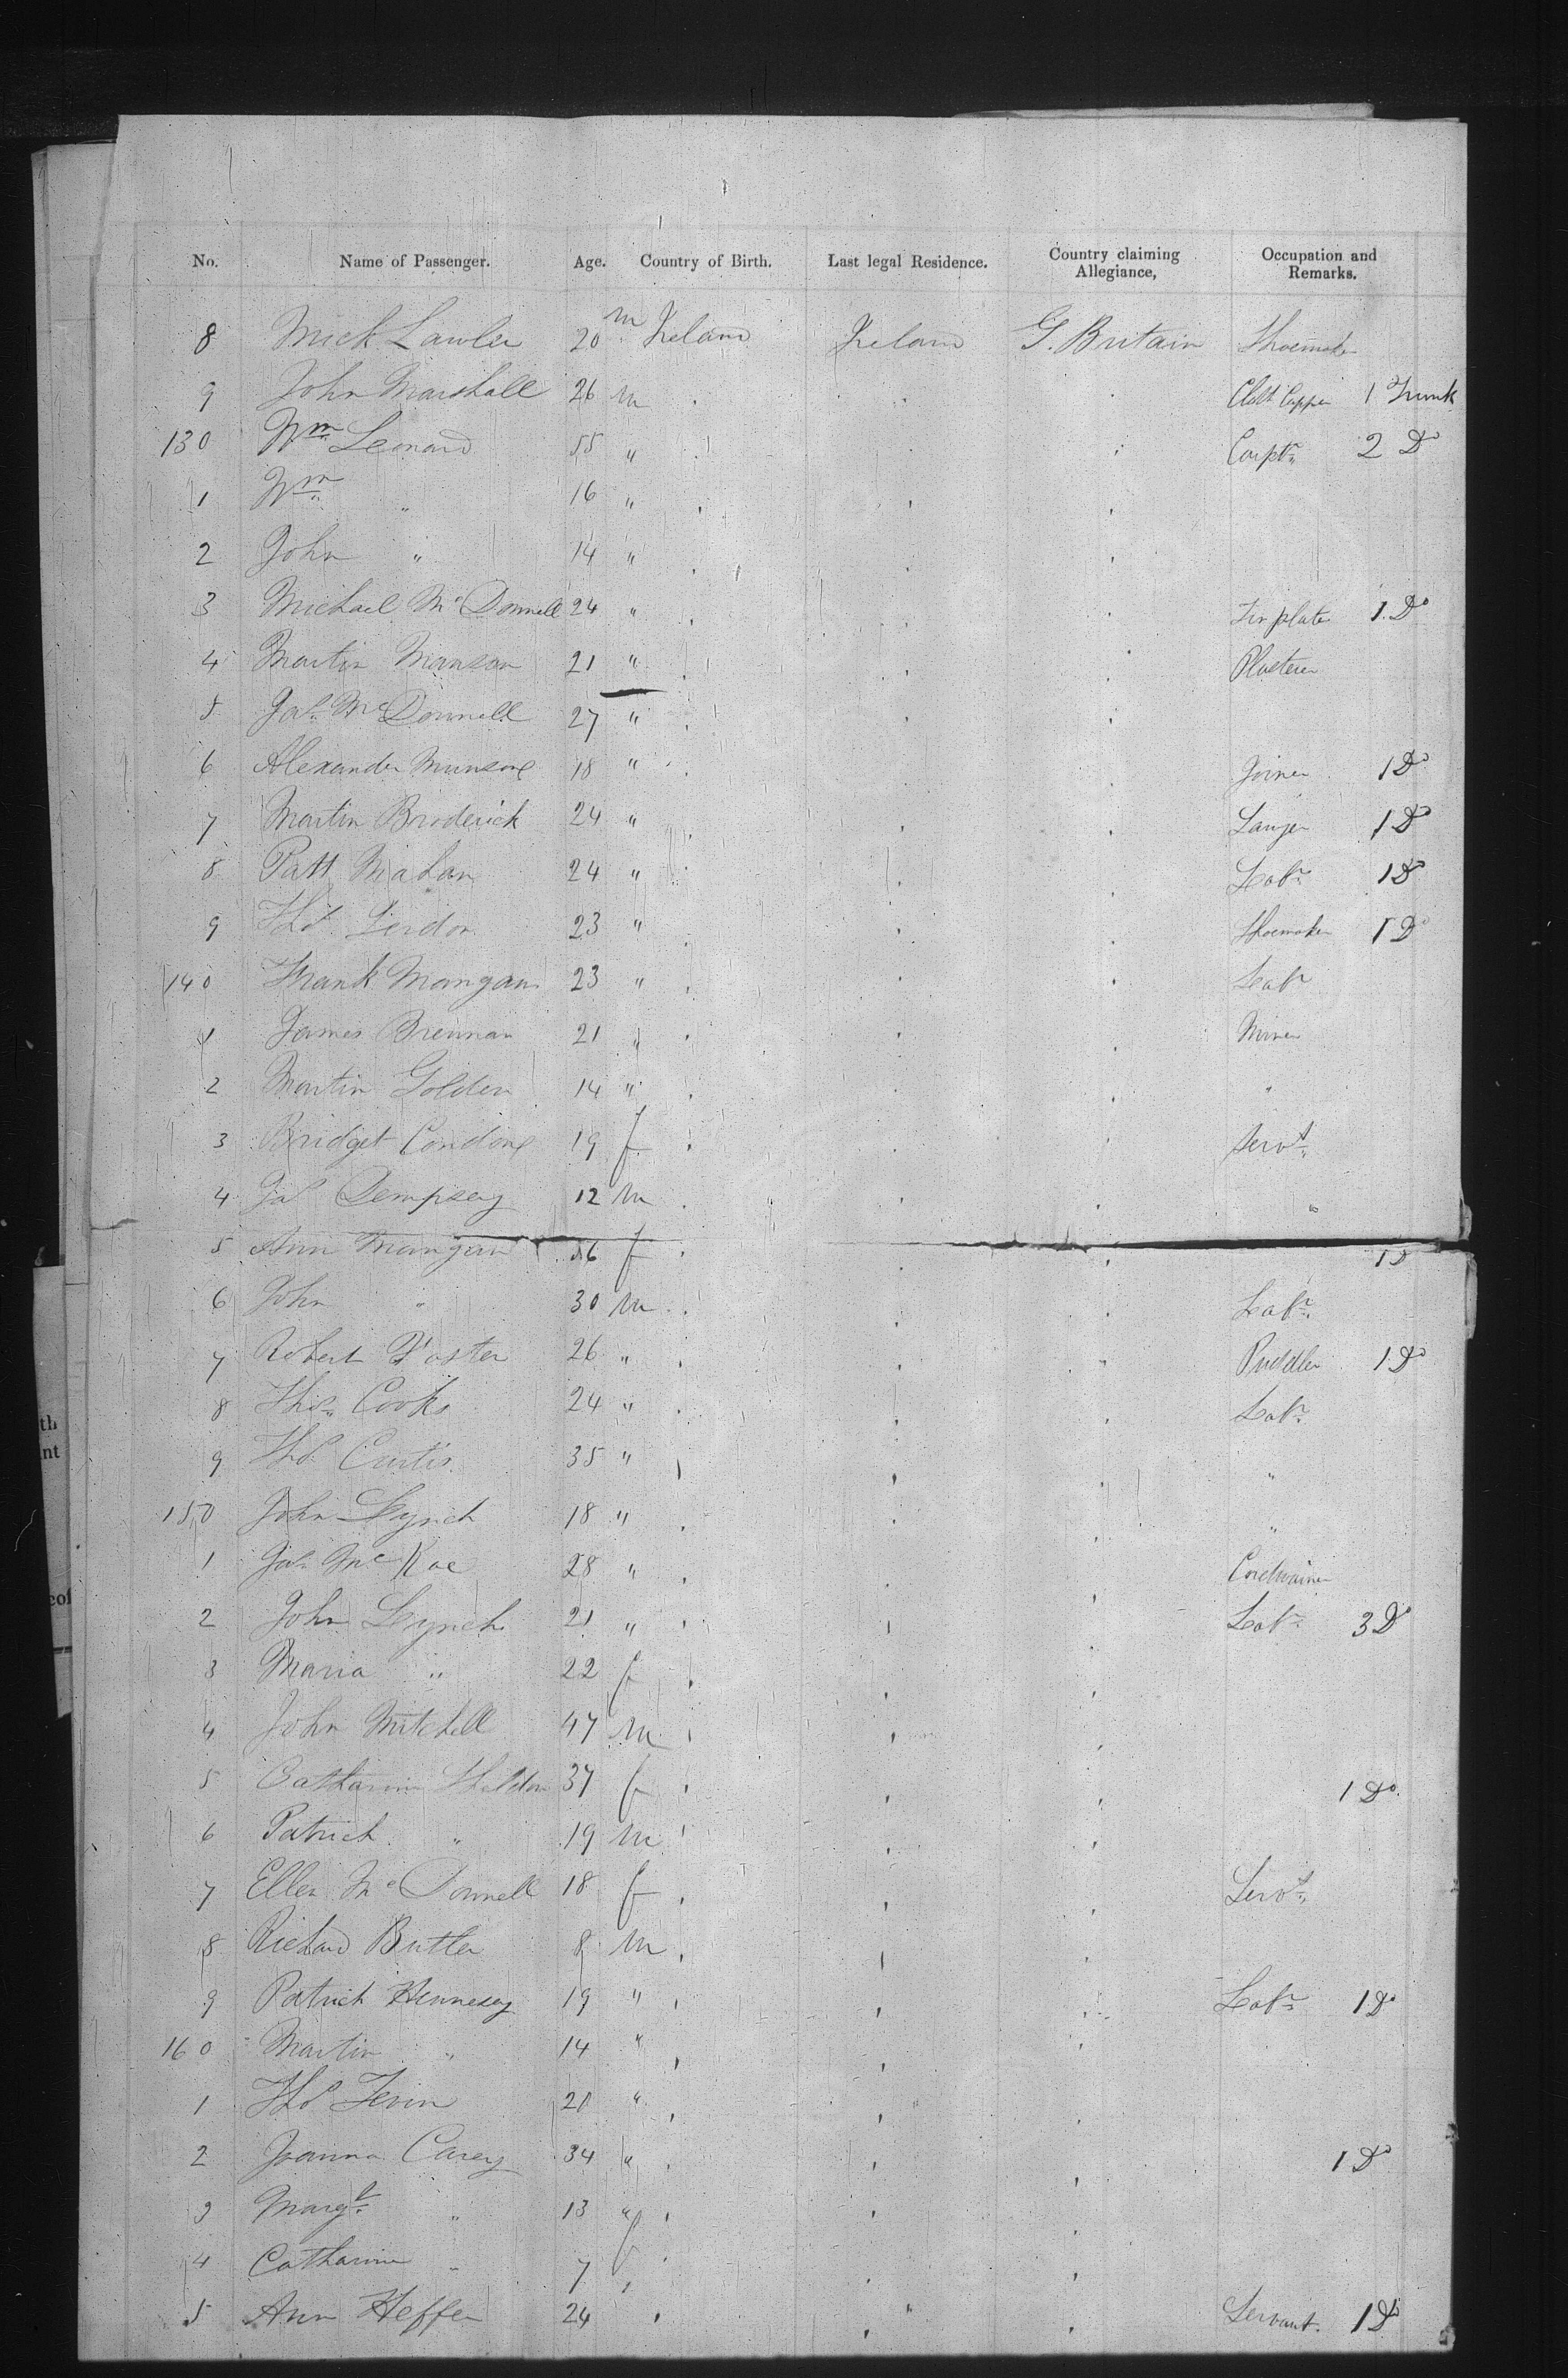 No. Name of Passenger. Age. Country of Birth. Last legal Residence. Country claiming Allegiance, Occupation and Remarks.
8 Mick Lawler 20 m Ireland Ireland G. Britain Shoemaker
9 John Marshall 26 m Cloth Capper 1 Trunk
130 Wm Leonard 55 " Carptr 2 Do
1 Wm " 16 "
2 John " 14 "
3 Michael McDonnell 24 " Tin plate 1 Do
4 Martin Manson 21 " Plasterer
5 Jas McDonnell 27 "
6 Alexander Munson 18 " Joiner 1 Do
7 Martin Broderick 24 " 1 Do
8 Patt Mahan 24 " Labr 1 Do
9 Thos 23 " Shoemaker 1 Do
140 Frank Mangan 23 " Labr
1 James Brennan 21 " Miner
2 Martin Golden 14 " "
3 Bridget Condon 19 f Servt
4 Jas Dempsey 12 m "
5 Ann Mangan 56 f 1 D
6 John " 30 m Labr
7 Robert Foster 26 " Puddler 1 Do
8 Thos Cooks 24 " Labr
9 Thos Curtis 35 " "
150 John Lynch 18 " "
1 Jas McKae 28 " Cordwainer
2 John Lynch 21 " Labr 3 Do
3 Maria " 22 f
4 John Mitchell 47 m
5 Catharine Sheldon 37 f 1 Do
6 Patrick " 19 m
7 Ellen McDonnell 18 f Servt
8 Richard Butler 8 m
9 Patrick Hennesey 19 " Labr 1 Do
160 Martin " 14 "
1 Thos 20 "
2 Joanna Carey 34 " 1 Do
3 Margt " 13 " f
4 Catharine " 7
5 Ann Heffer 24 " Servant 1 Do
th
nt